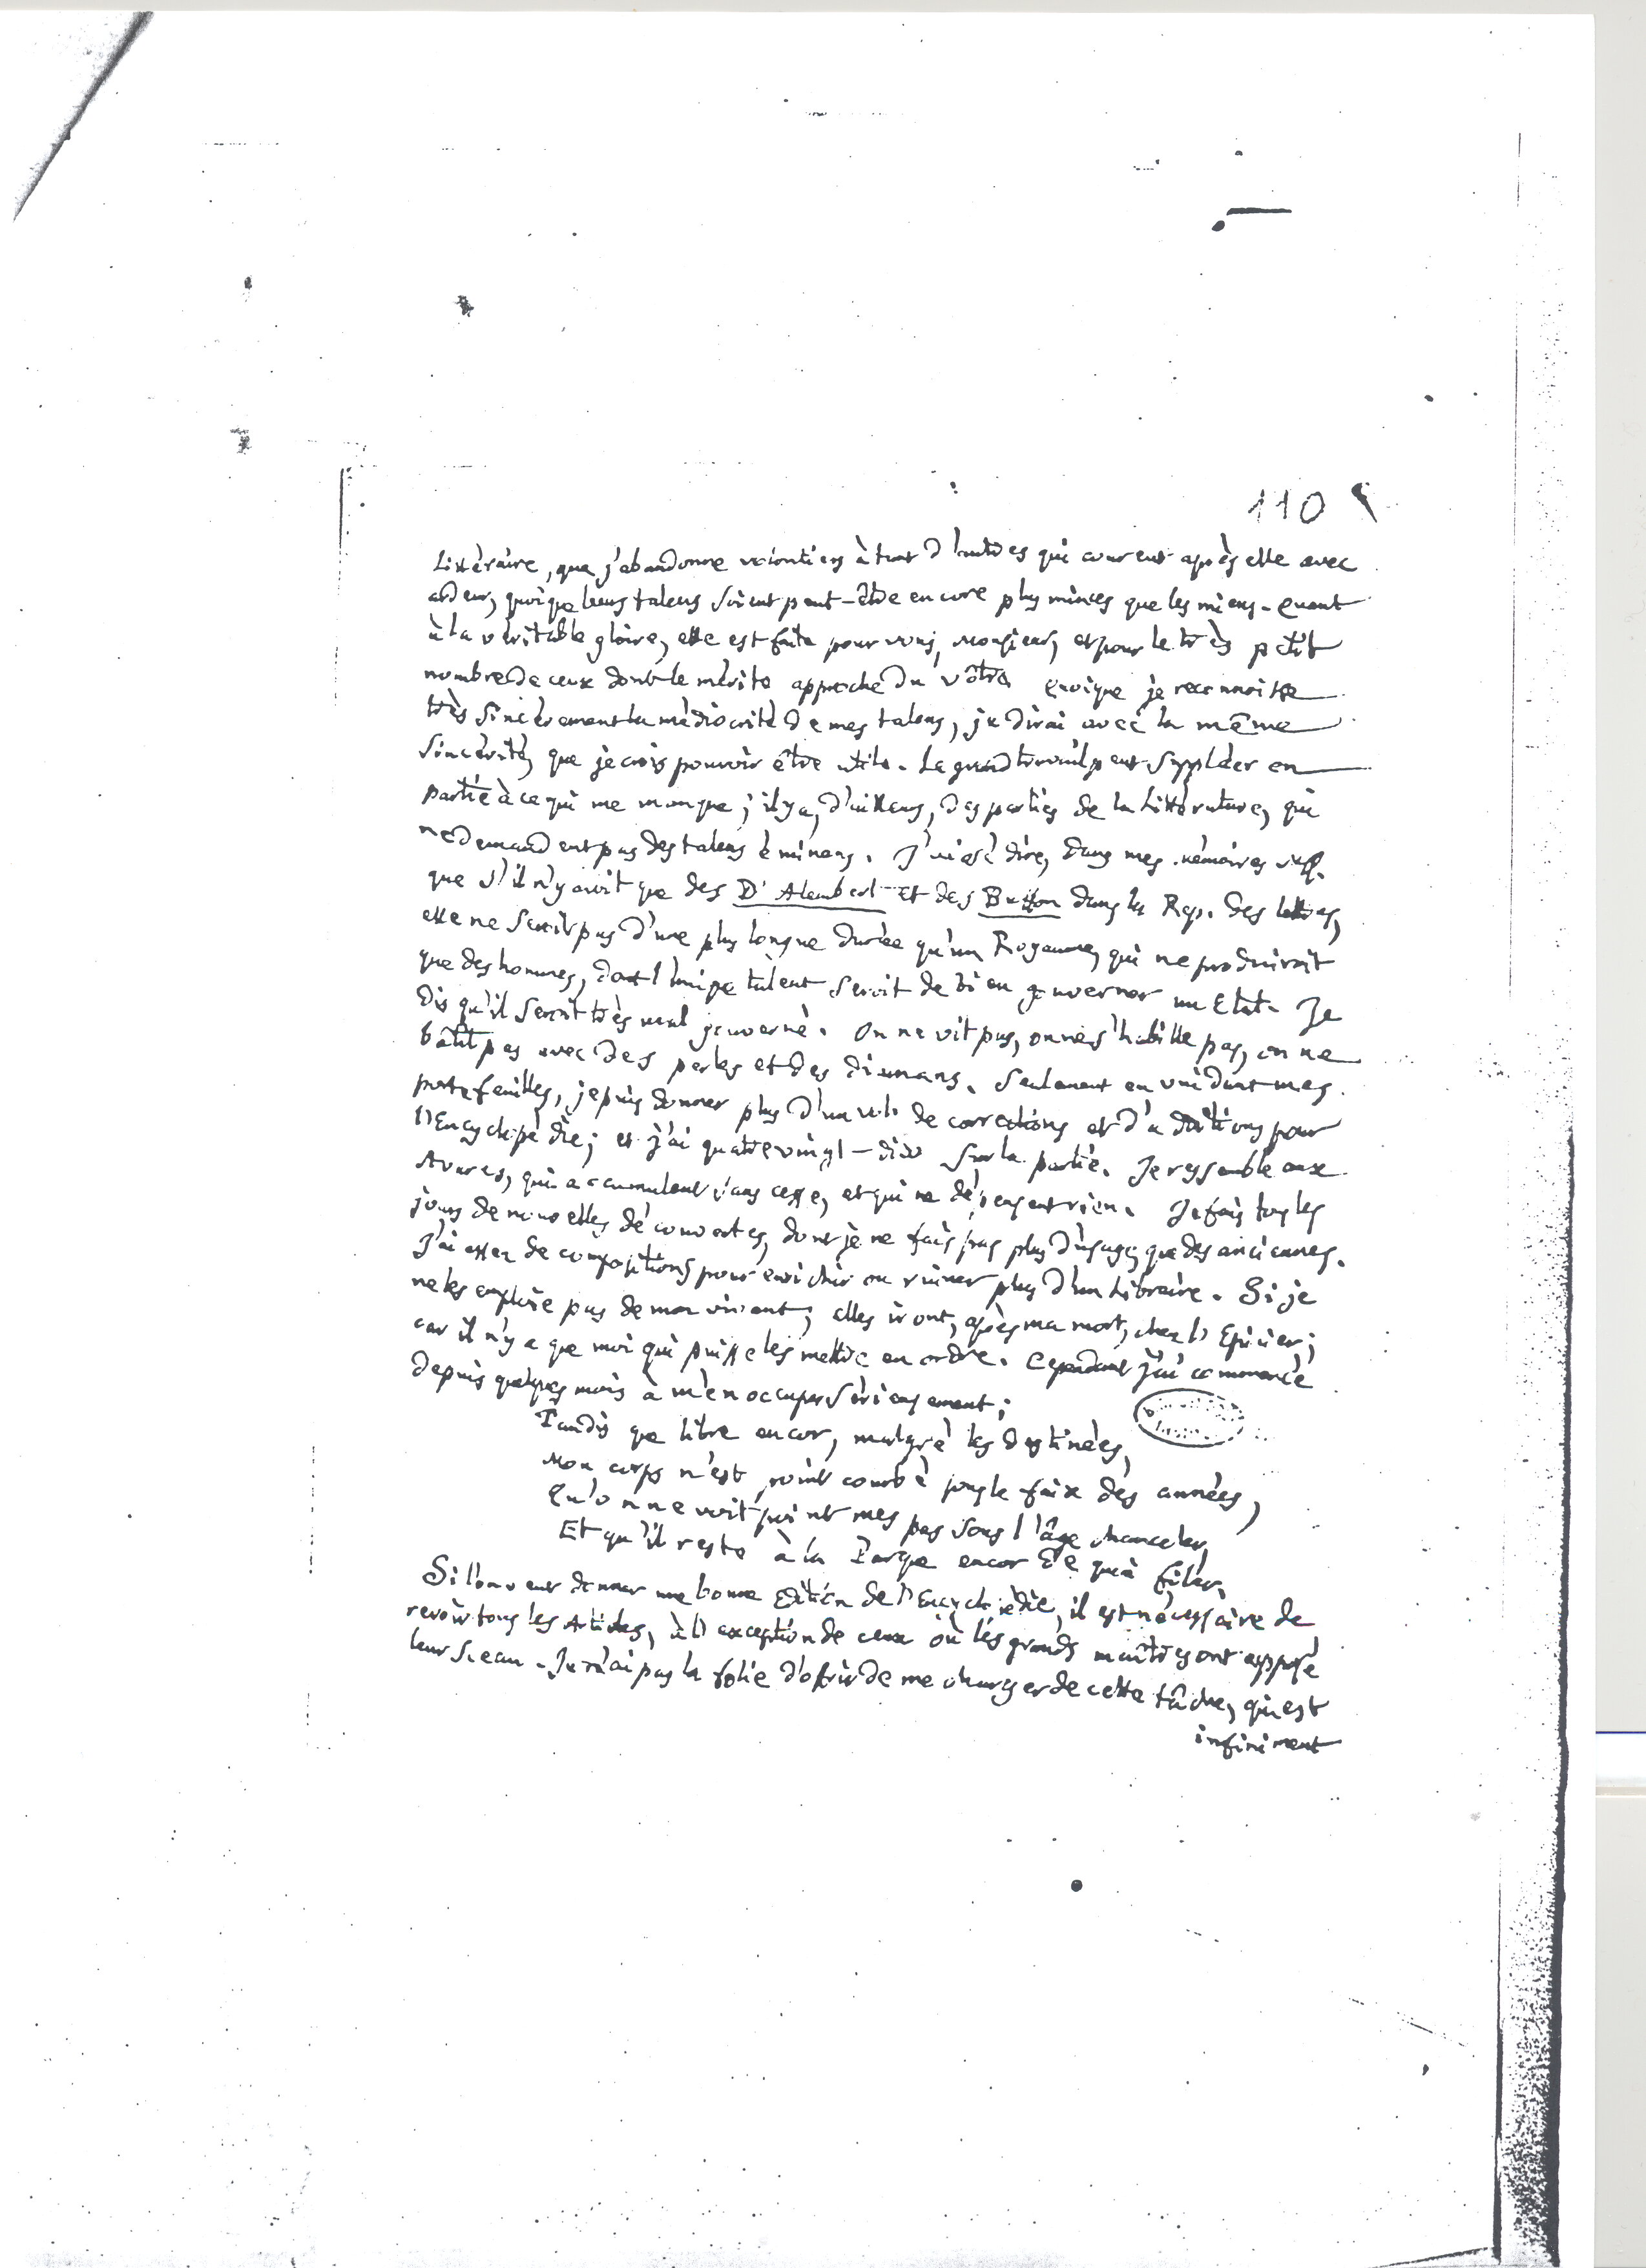 110
Littéraire, que j'abandonne volontiers à tant d'autres qui courent après elle avec
ardeur, quoique leurs talens soient peut-être encore plus minces que les miens. Quant
à la véritable gloire, elle est faite pour vous, Monsieur, et pour le très petit
nombre de ceux dont le mérite approche du vôtre Quoique je reconnoisse
très sincèrement la médiocrité de mes talens, je dirai avec la même
sincérité, que je crois pouvoir être utile. Le grand travail peut suppléer en
partie à ce qui me manque; il y a, d'ailleurs, des parties de la Littérature, qui
ne demandent pas des talens éminens. J'ai osé dire, dans mes mémoires
que s'il n'y avoit que des D'Alembert et des Buffon dans la Rep. des lettres,
elle ne seroit pas d'une plus longue durée qu'un Royaume, qui ne produiroit
que des hommes, dont l'unique talent seroit de bien gouverner un Etat. Je
dis qu'il seroit très mal gouverné. On ne vit pas, on ne s'habille pas, on ne
bâtit pas avec des perles et des diamans. Seulement en vuidant mes
portefeuilles, je puis donner plus d'un vol. de corrections et d'additions pour
l'Encyclopédie; et j'ai quatre vingt-dix sur la partie. Je ressemble aux
Avares, qui accumulent sans cesse, et qui ne dépensent rien. Je fais tous les
jours de nouvelles découvertes, dont je ne fais pas plus d'usage, que des anciennes.
J'ai assez de compositions pour enrichir ou ruiner plus d'un Libraire. Si je
ne les emploie pas de mon vivant, elles iront, après ma mort, chez l'Epicier;
car il n'y a que moi qui puisse les mettre en ordre. Cependant j'ai commencé
depuis quelques mois à m'en occuper sérieusement;
Tandis que libre encor, malgré les destinées,
Mon corps n'est point courbé sous le faix des années,
Qu'on ne voit point mes pas sous l'âge chanceler,
Et qu'il reste à la Parque encor de quoi filer.
Si l'on veut donner une bonne Edition de l'Encyclopédie, il est nécessaire de
revoir tous les Articles, à l'exception de ceux où les grands maîtres ont apposé
leur sceau. Je n'ai pas la folie d'ofrir de me charger de cette tâche, qui est
infiniment